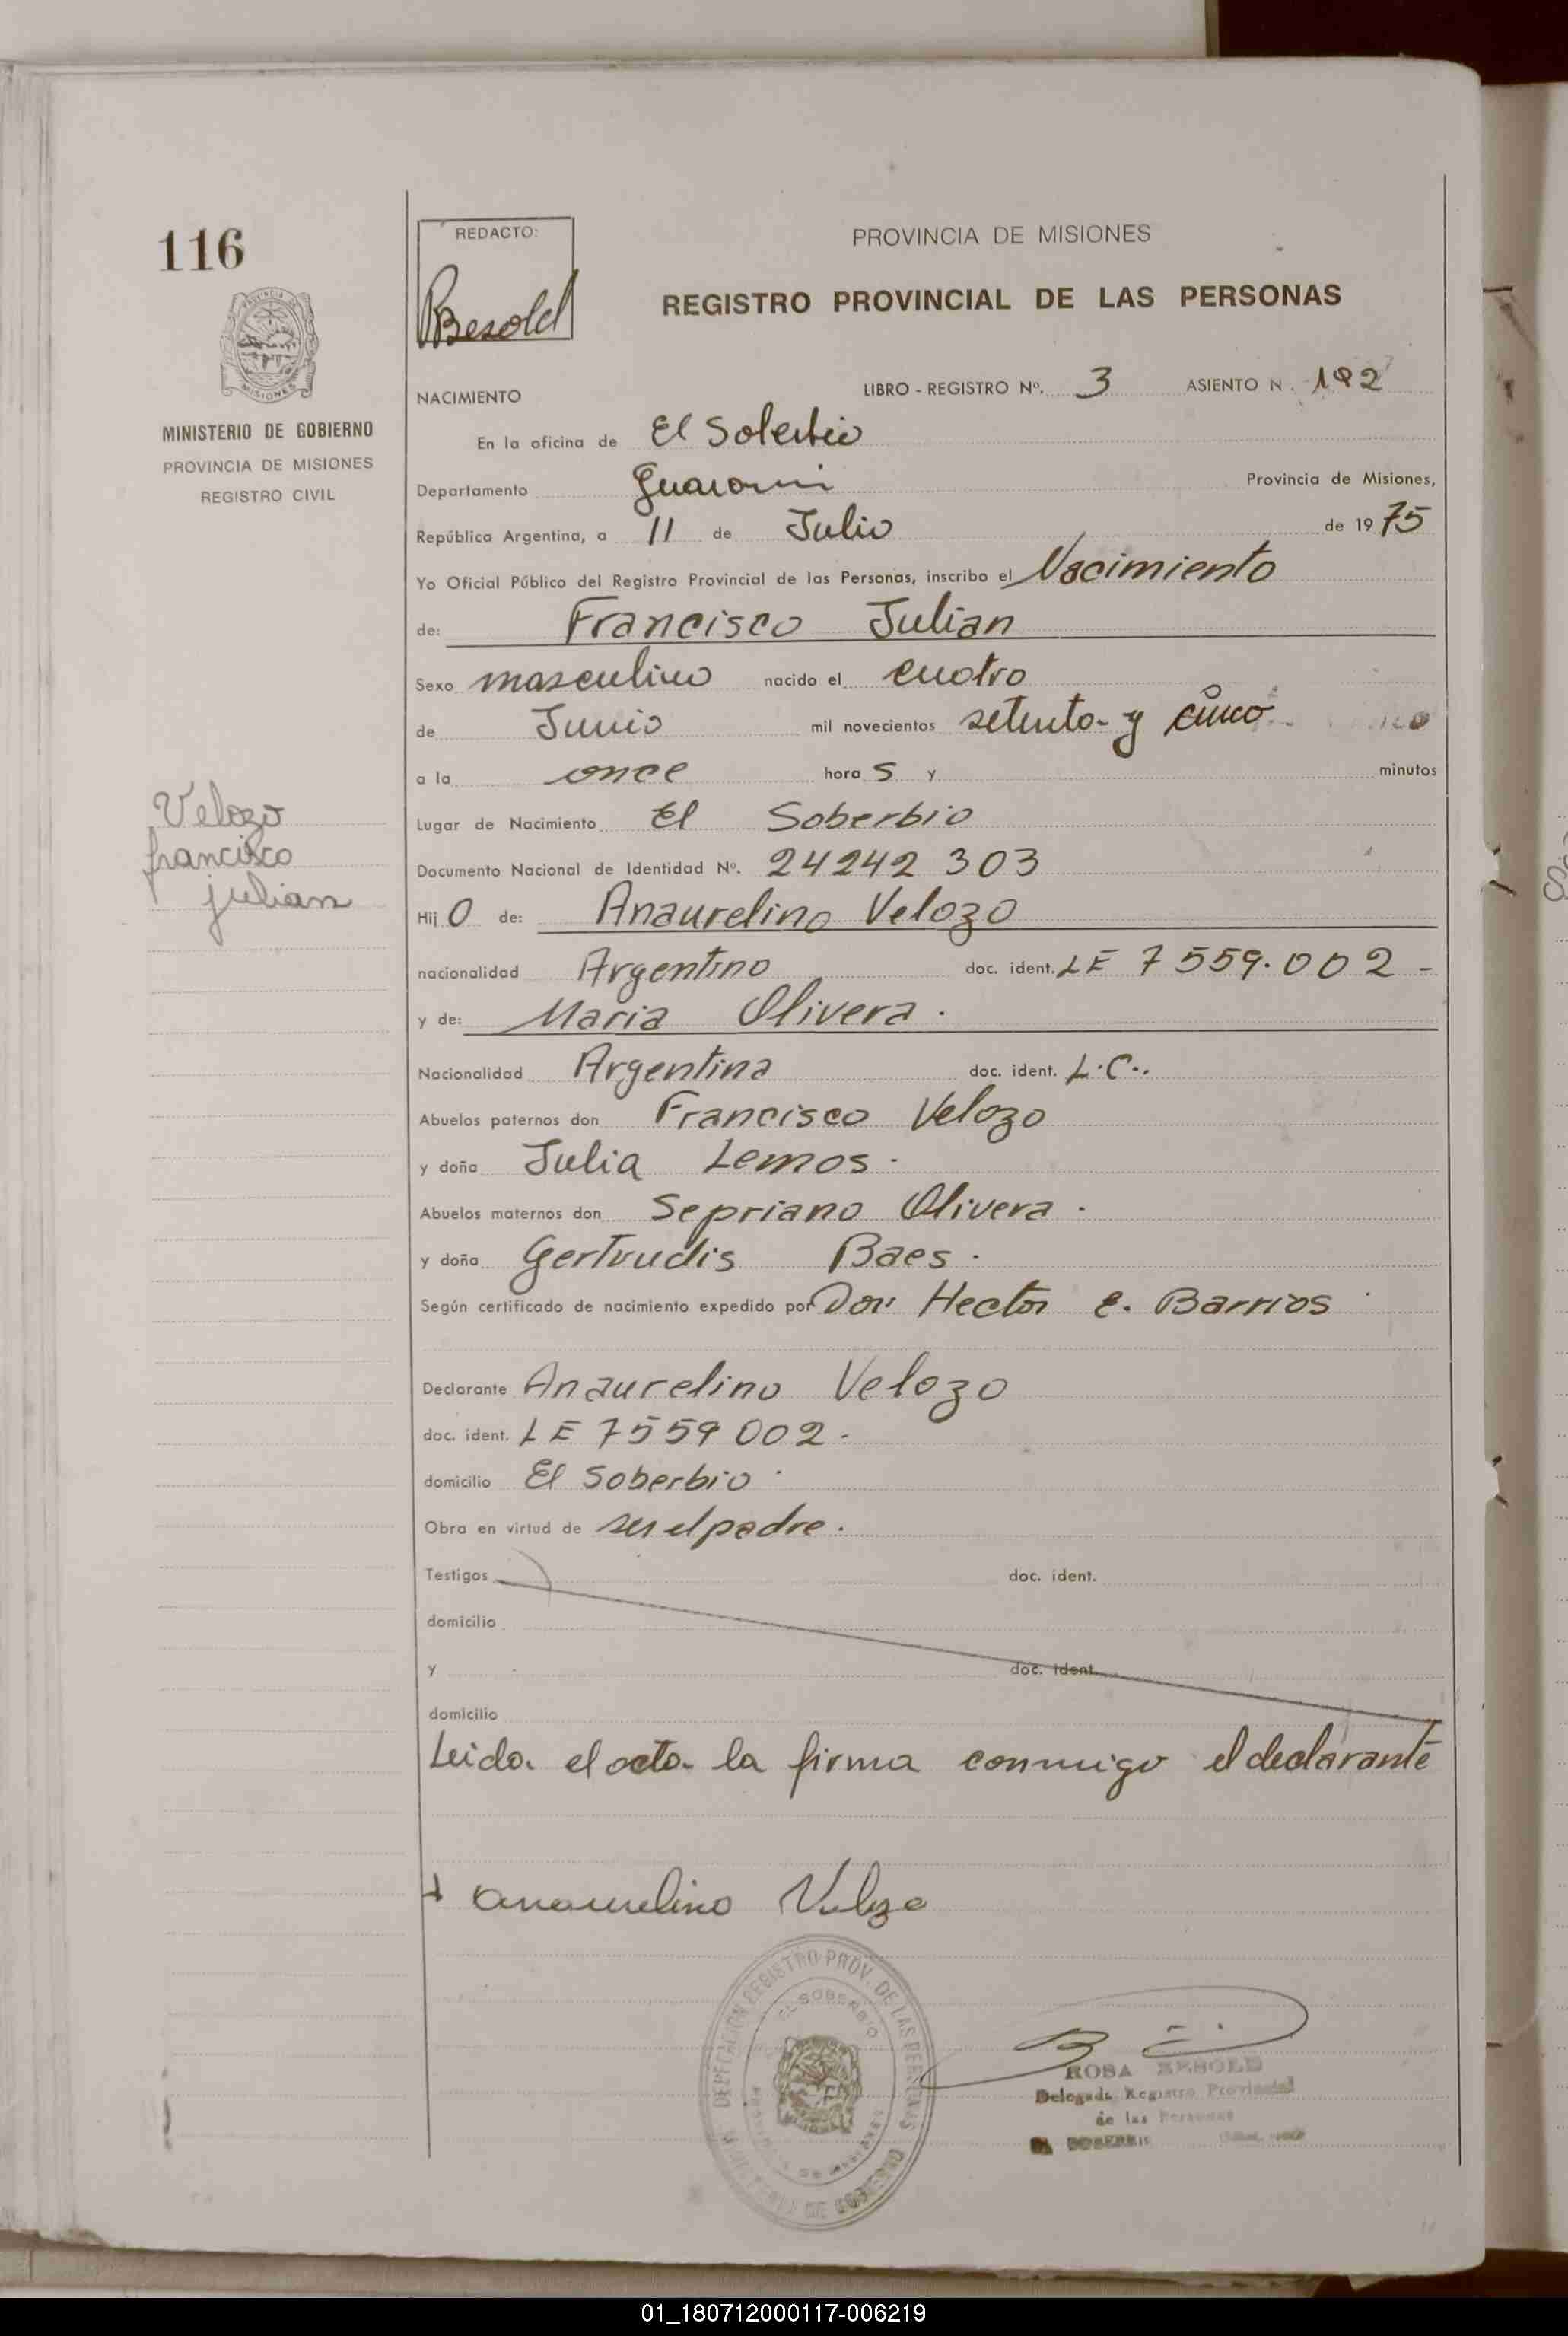 116
MINISTERIO DE GOBIERNO
PROVINCIA DE MISIONES
REGISTRO CIVIL
Velozo
francisco
julian
REDACTO:
Besold
PROVINCIA DE MISIONES
REGISTRO PROVINCIAL DE LAS PERSONAS
NACIMIENTO
LIBRO - REGISTRO Nº. 3 ASIENTO N. 192
En la oficina de El Soberbio
Departamento Guarani Provincia de Misiones,
República Argentina, a 11 de Julio de 1975
Yo Oficial Público del Registro Provincial de las Personas, inscribo el Nacimiento
de: Francisco Julian
Sexo masculino nacido el cuatro
de Junio mil novecientos setenta y cinco
a la once hora s y minutos
Lugar de Nacimiento El Soberbio
Documento Nacional de Identidad Nº. 24242 303
Hij o de: Anaurelino Velozo
nacionalidad Argentino doc. ident. LE 7 559.002 -
y de: Maria Olivera .
Nacionalidad Argentina doc. ident. L.C..
Abuelos paternos don Francisco Velozo
y doña Julia Lemos .
Abuelos maternos don Sepriano Olivera .
y doña Gertrudis Baes .
Según certificado de nacimiento expedido por Don Hector E. Barrios
Declarante Anaurelino Velozo
doc. ident. LE 7559 002 .
domicilio El Soberbio .
Obra en virtud de ser el padre .
Testigos doc. ident.
domicilio
y doc. ident.
domicilio
Leida el acta la firma conmigo el declarante
anaurelino Velozo
DELEGACION REGISTRO PROV. DE LAS PERSONAS
EL SOBERBIO
MINISTERIO DE GOBIERNO
PROVINCIA DE MISIONES
ROSA BESOLD
Delegada Registro Provincial
de las Personas
EL SOBERBIO
01_180712000117-006219